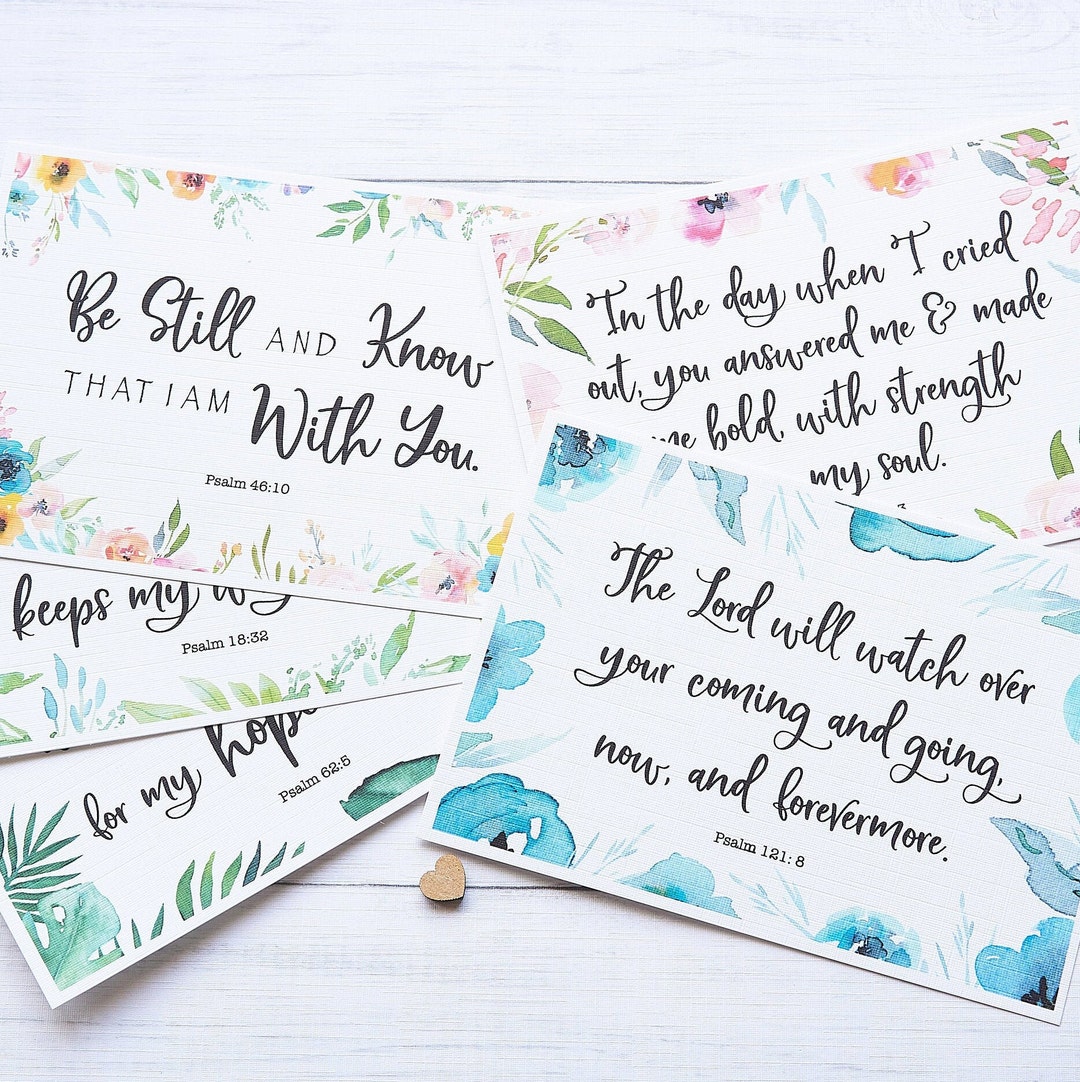 Be Still AND Know
THAT I AM With You.
Psalm 46:10
In the day when I cried
out, you answered me & made
me bold, with strength
my soul.
keeps my
Psalm 18:32
for my hope
Psalm 62:5
The Lord will watch over
your coming and going,
now, and forevermore.
Psalm 121: 8